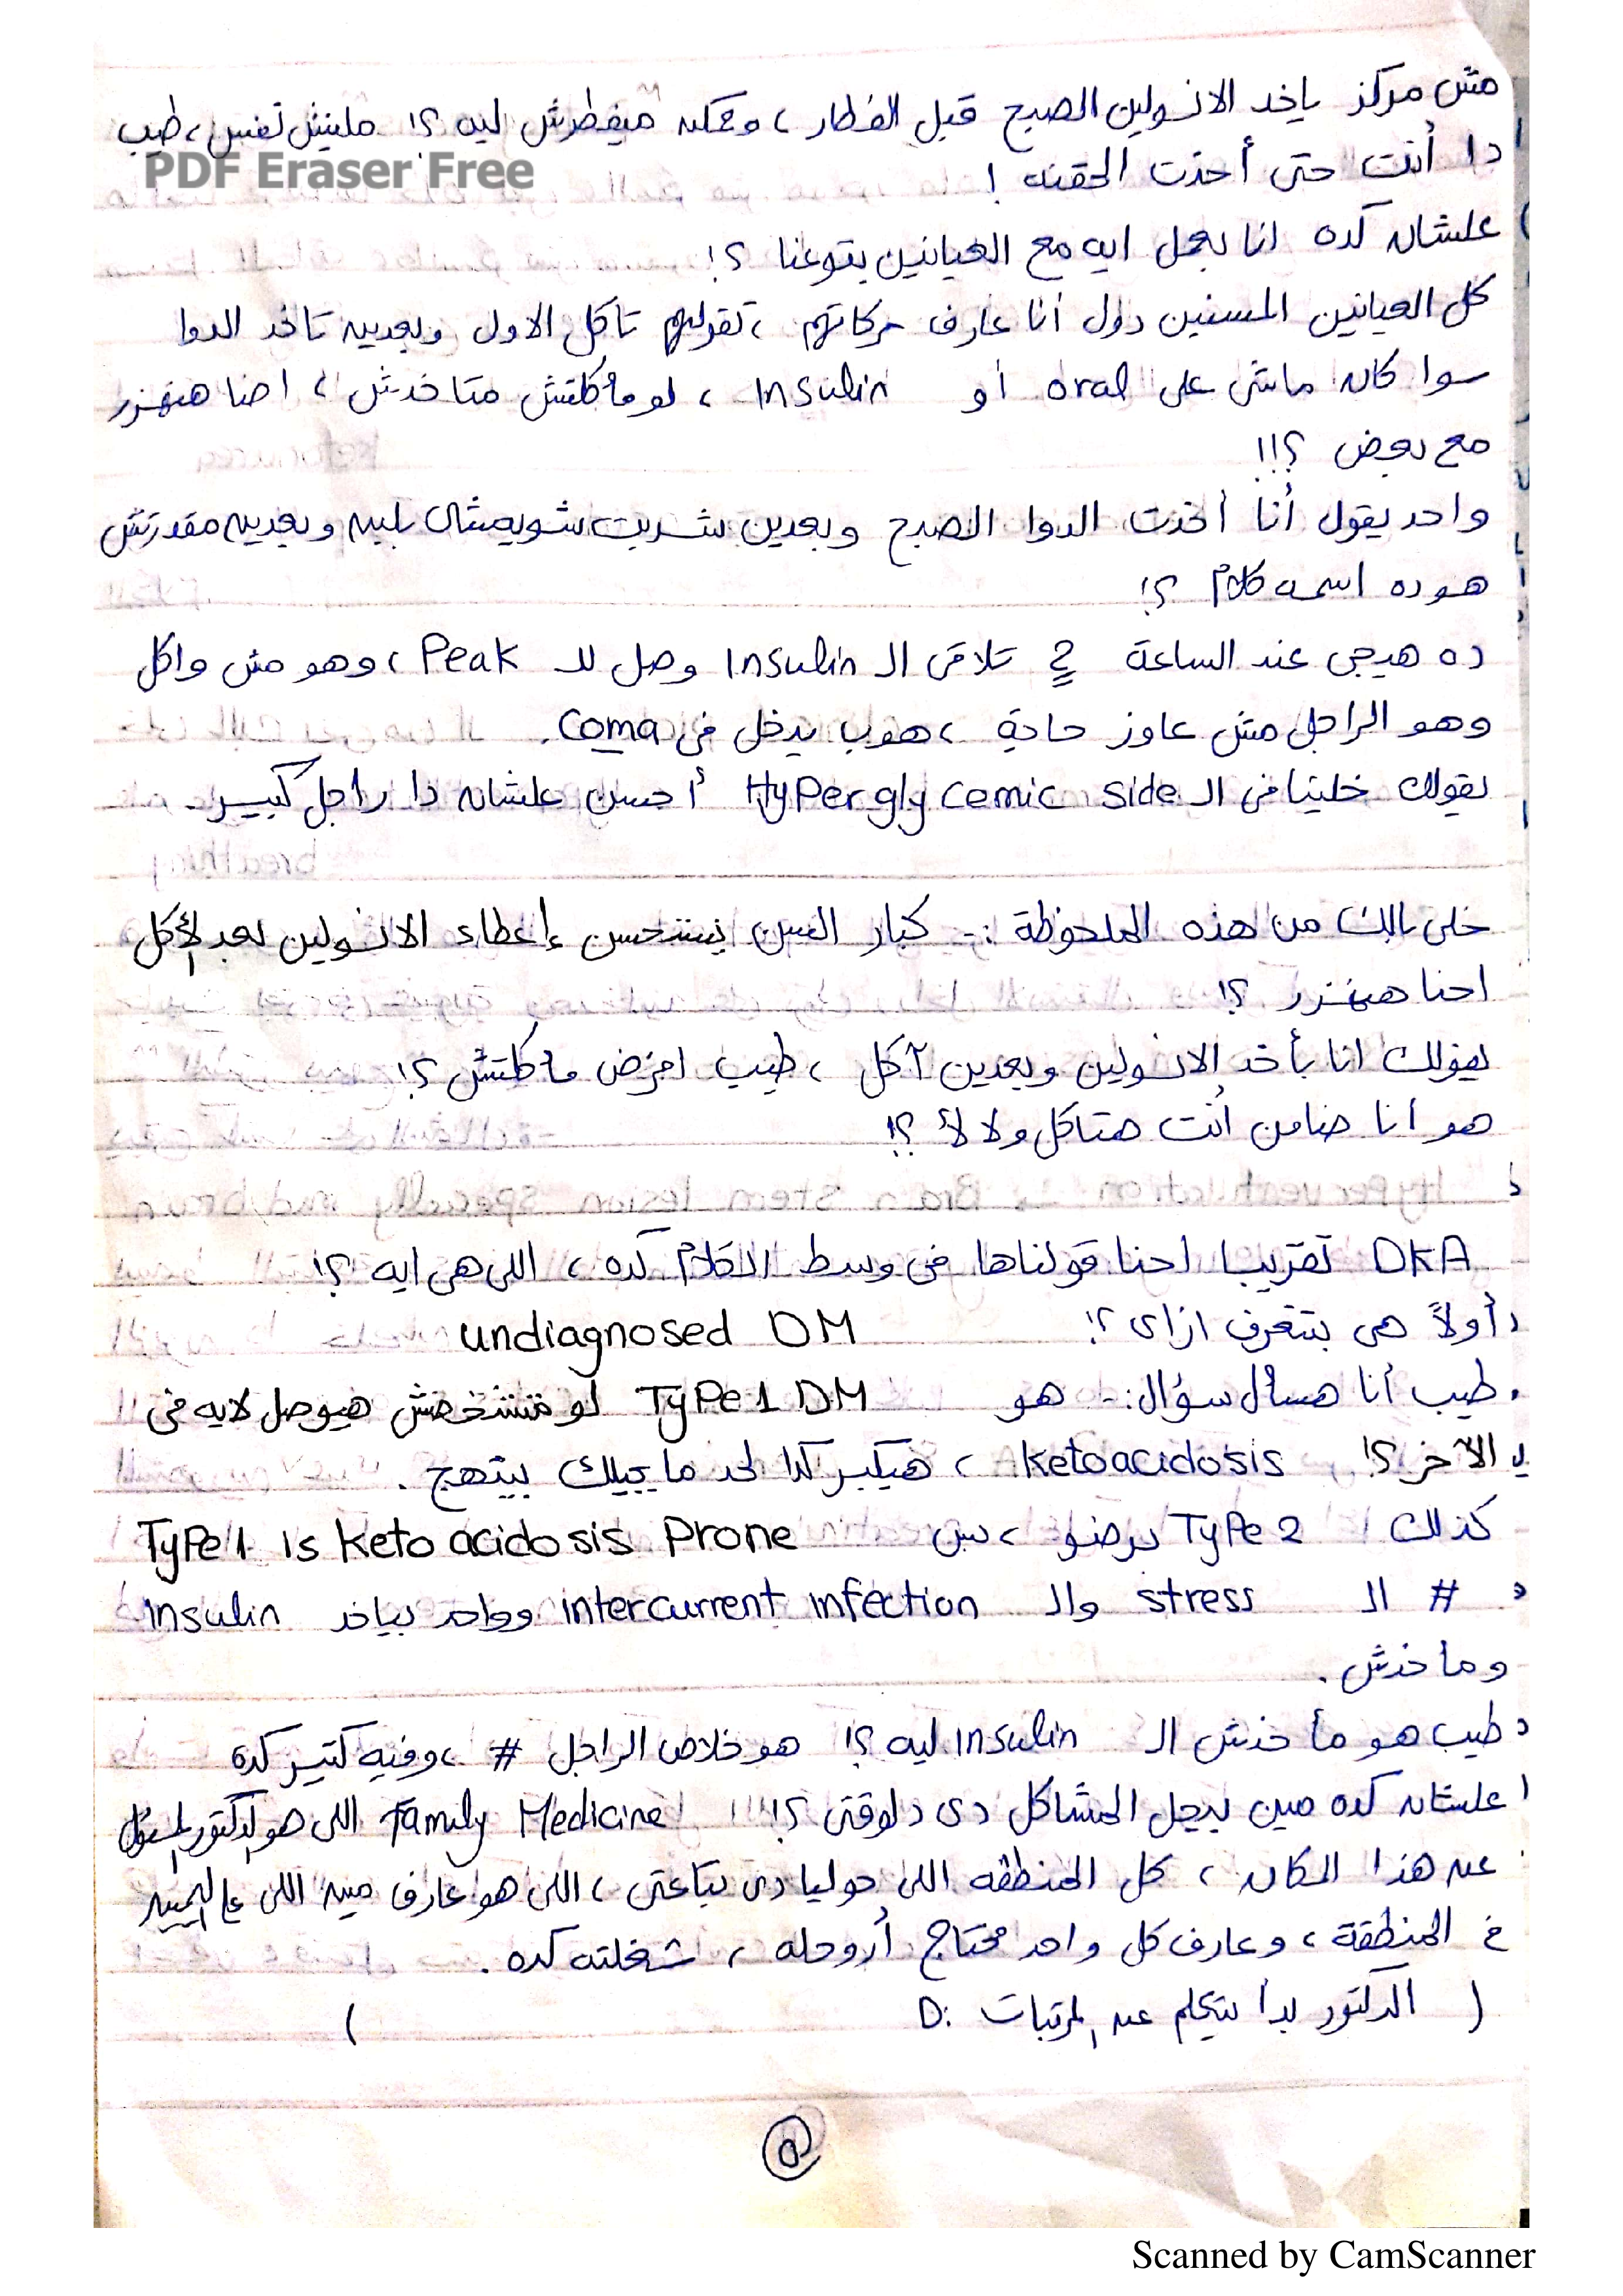 مش مركز ياخد الانسولين الصبح قبل الفطار ، وممكن ميفطرش ليه ؟! مليش نفس ، طيب
دا أنت حتى أخذت الحقنه !
PDF Eraser Free
علشان كده انا بعمل ايه مع العيانين بتوعنا ؟!
كل العيانين المسنين دول أنا عارف حركاتهم ، تقولهم تاكل الاول وبعدين تاخد الدوا
سوا كان ماشى على oral أو Insulin ، لو مأكلتش متاخدش ، احنا هنهزر
مع بعض ؟!!
واحد يقول أنا أخذت الدوا الصبح وبعدين شربت شويه شاى بلبن وبعدين مقدرتش
هو ده اسمه كلام ؟!
ده هيجى عند الساعة 2 تلاقى الـ Insulin وصل للـ Peak ، وهو مش واكل
وهو الراجل مش عاوز حاجة ، هوب يدخل فى Coma.
يقولك خلينا فى الـ Hyperglycemic side أحسن علشان دا راجل كبير.
خلى بالك من هذه الملحوظة :- كبار السن يستحسن إعطاء الانسولين بعد الأكل
احنا هنهزر ؟!
يقولك انا بأخد الانسولين وبعدين آكل ، طيب افرض مأكلتش ؟!
هو أنا ضامن أنت هتاكل ولا لأ ؟!
DKA تقريبا احنا قولناها فى وسط الكلام كده ، اللى هى ايه ؟!
أولاً هى بتتعرف ازاى ؟! undiagnosed DM
طيب أنا هسأل سؤال :- هو Type 1 DM لو متشخصش هيوصل لايه فى
الآخر ؟! ketoacidosis ، هيكبر كدا لحد ما يجيلك بيتهج .
كذلك Type 2 برضو ، بس Type 1 is keto acidosis Prone
# الـ stress والـ intercurrent infection وواحد بياخد insulin
ومأخدش .
طيب هو مأخدش الـ Insulin ليه ؟! هو خلاص الراجل # ، وفيه كتير كده
علشان كده مين بيحل المشاكل دى دلوقتى ؟!!! Family Medicine اللى هو الدكتور المسؤول
عن هذا المكان ، كل المنطقه اللى حوليا دى بتاعتى ، اللى هو عارف مين اللى عالیمین
فى المنطقة ، وعارف كل واحد محتاج أروحله ، شغلته كده .
( الدكتور بدأ يتكلم عن المرتبات :D )
٥
Scanned by CamScanner